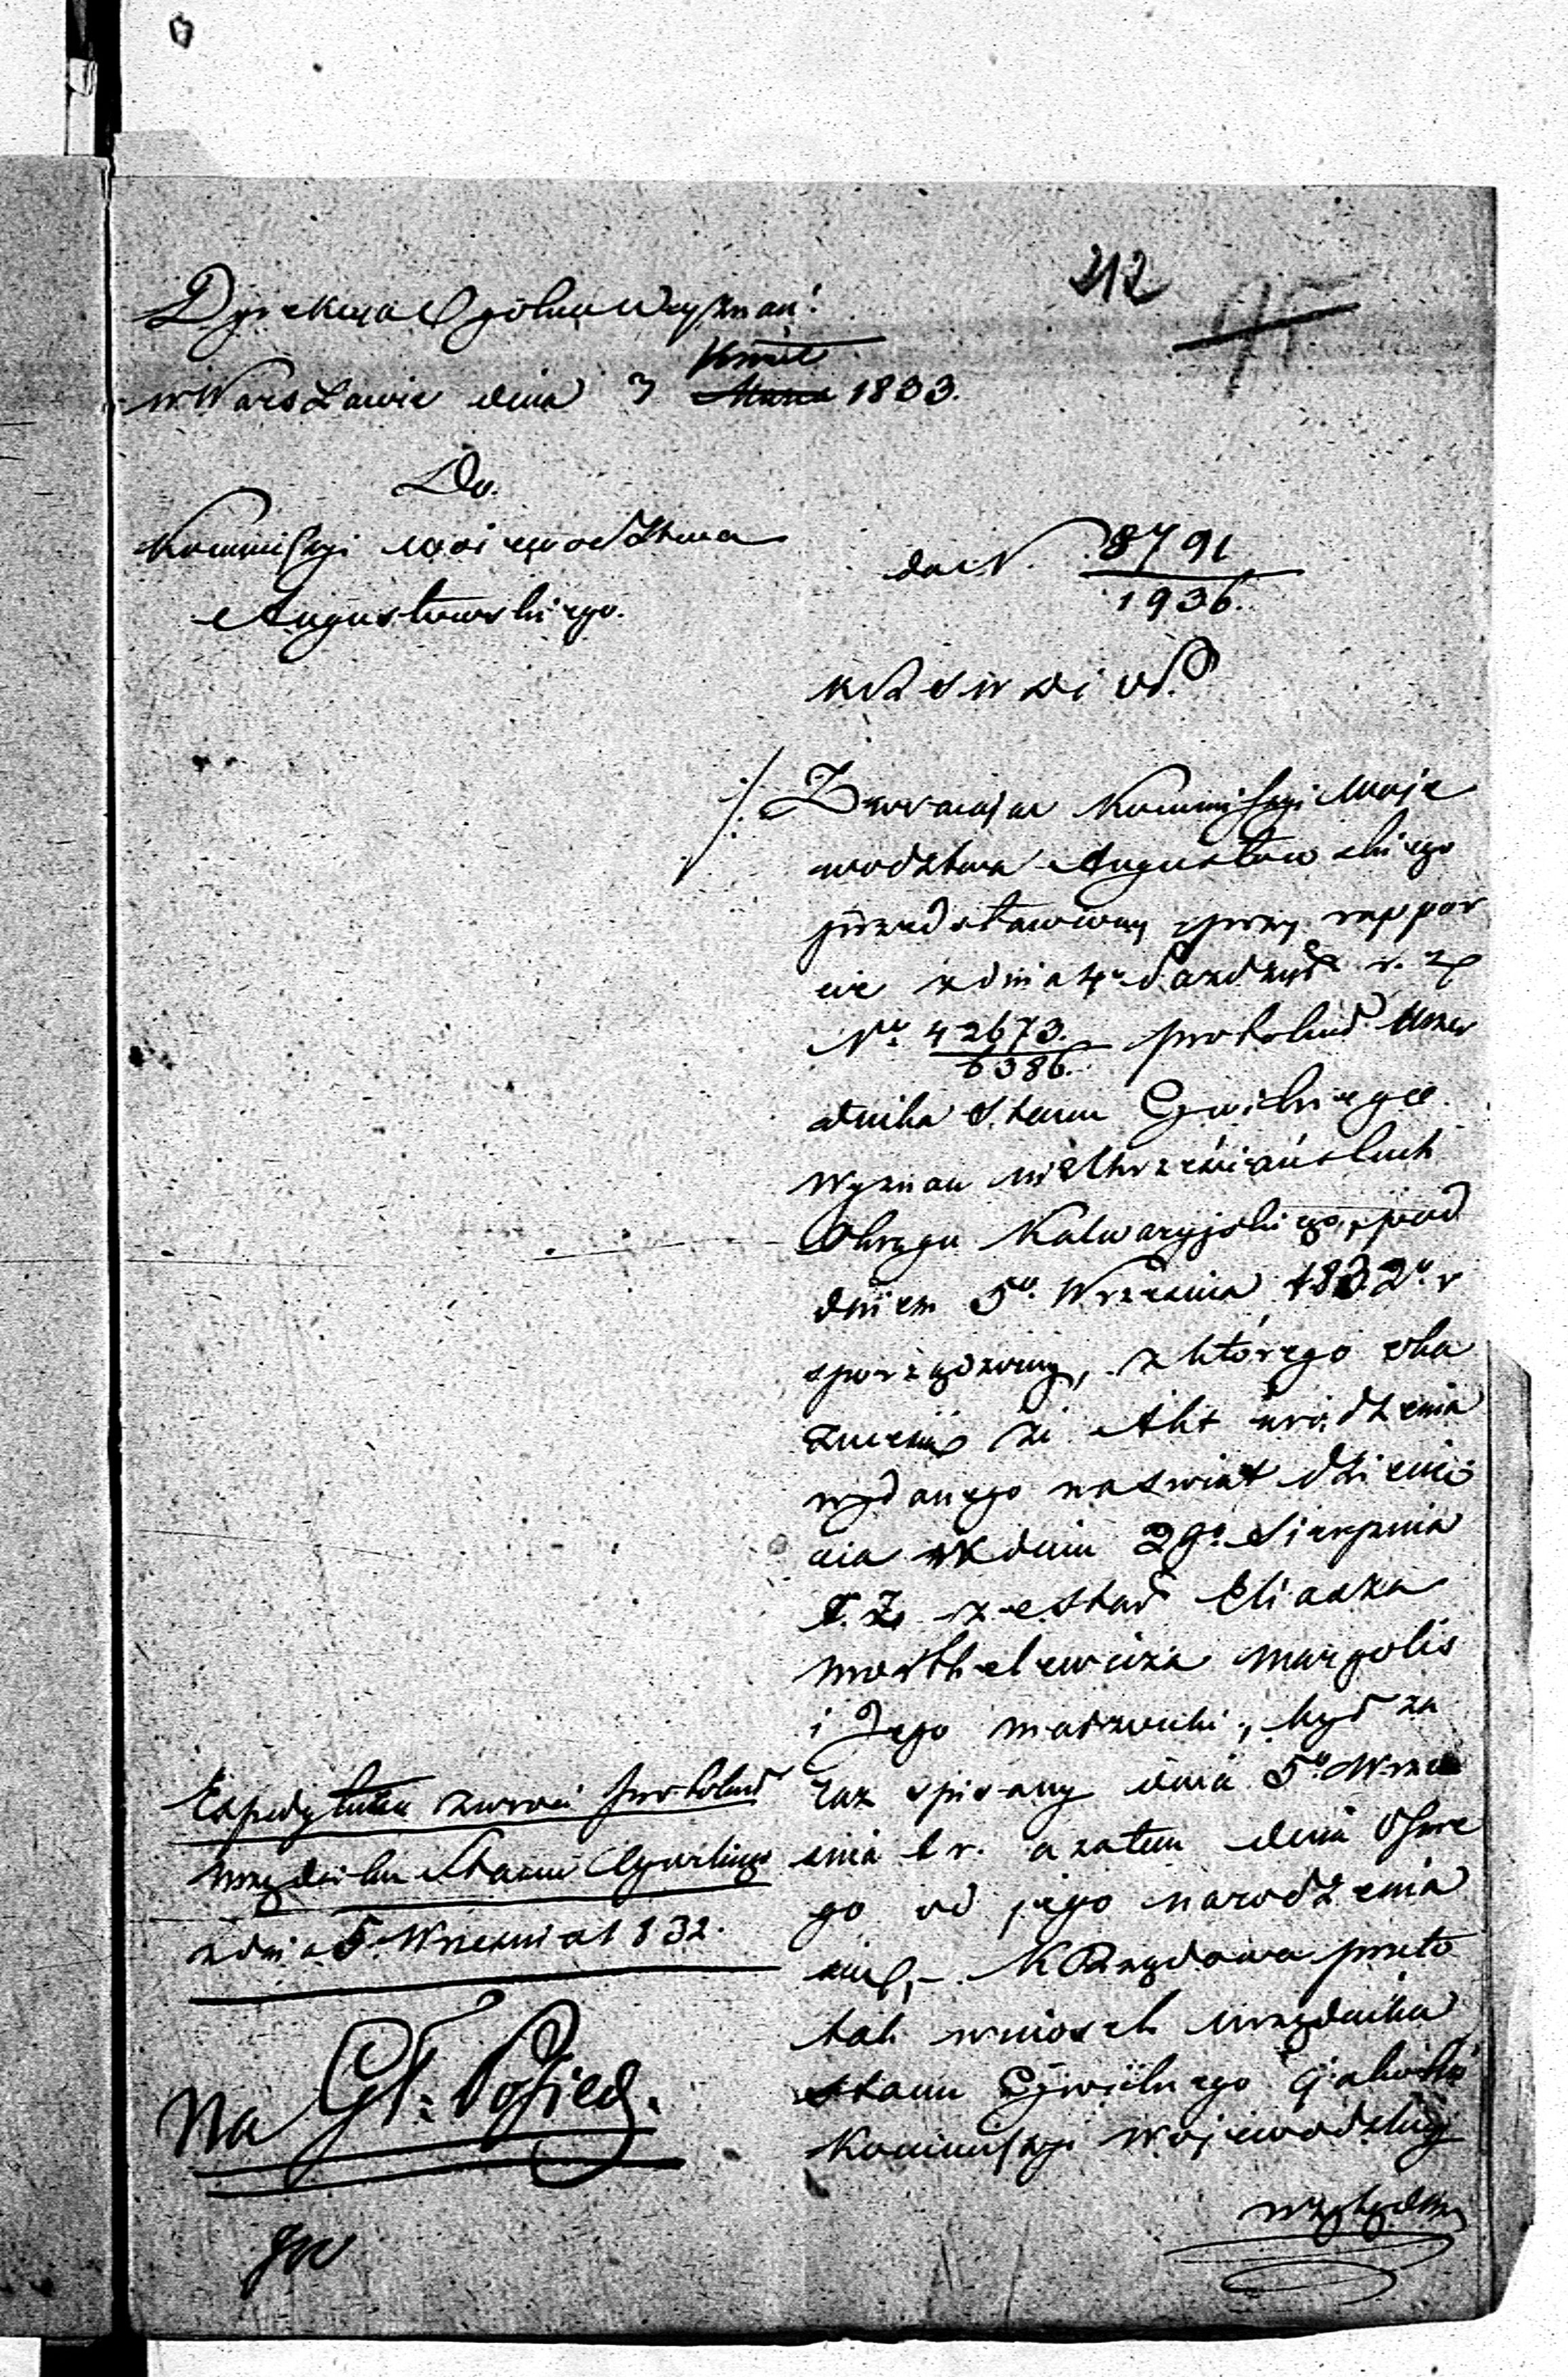 212
95
Dyrekcya Ogólna Wyznań
Kwiet
w Warszawie dnia 3 Marca 1833.
Do
Kommissyi Woiewodztwa
Augustowskiego.
do N. 8791
1936.
KRSWDiOP.
Zwracając Kommissyi Woje
wodztwa Augustowskiego
przedstawiony przy rappor
cie z dnia 4 r. z.
No 42673. protokuł Urzę
6386.
dnika Stanu Cywilnego
Wyznań nieChrześciańskich
Okręgu Kalwaryjskiego, pod
dniem 5o Września 1832o r
sporządzony, z którego oka
że Akt urodzenia
wydanego na świat dzieci
cia w dniu 29o Sierpnia
r. z. ze Eliasza
Morthelewicza Margolis
i Jego małżonki, był za
raz spisany dnia 5o Wrze
śnia b r. a zatem dnia Osme
go od jego narodzenia
KRządowa przeto
tak wniosek Urzędnika
Stanu Cywilnego jako też
Kommissyi Wojewodzkiej
względem
Expedytura zwroci protokuł
Urzędnika Stanu Cywilnego
z dnia 5 Wrzesnia 1832.
Na Posied.